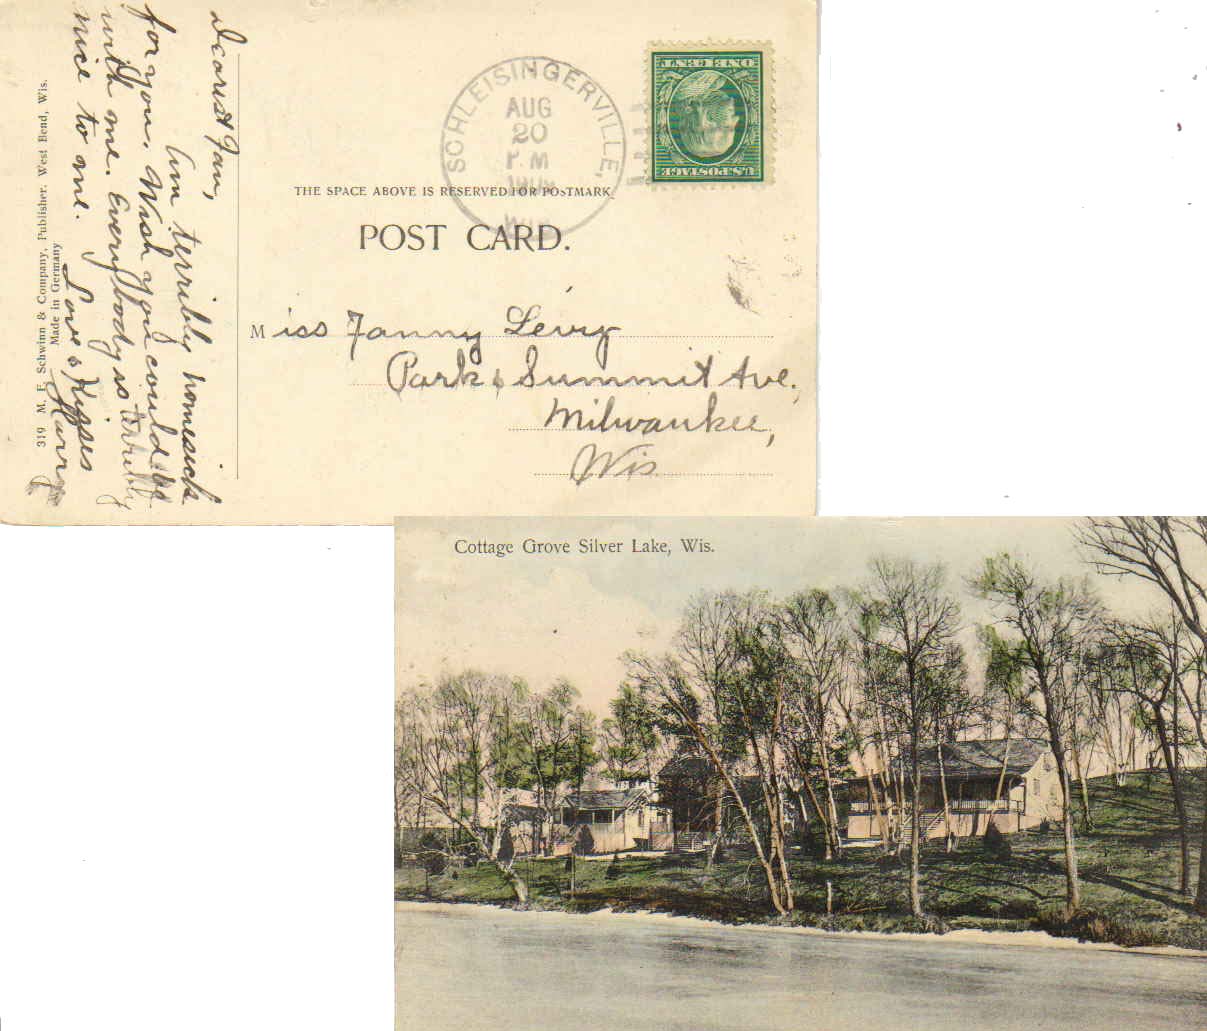 Dearest Fan,
Am terribly homesick
for you. Wish you could be
with me. Everybody is terribly
nice to me.
Love & Kisses
Harry
319 M. F. Schwinn & Company, Publisher, West Bend, Wis.
Made in Germany
SCHLEISINGERVILLE,
AUG
20
P M
WIS
ONE CENT
U.S. POSTAGE
THE SPACE ABOVE IS RESERVED FOR POSTMARK
POST CARD.
Miss Fanny Levy
Park & Summit Ave.,
Milwaukee,
Wis.
Cottage Grove Silver Lake, Wis.